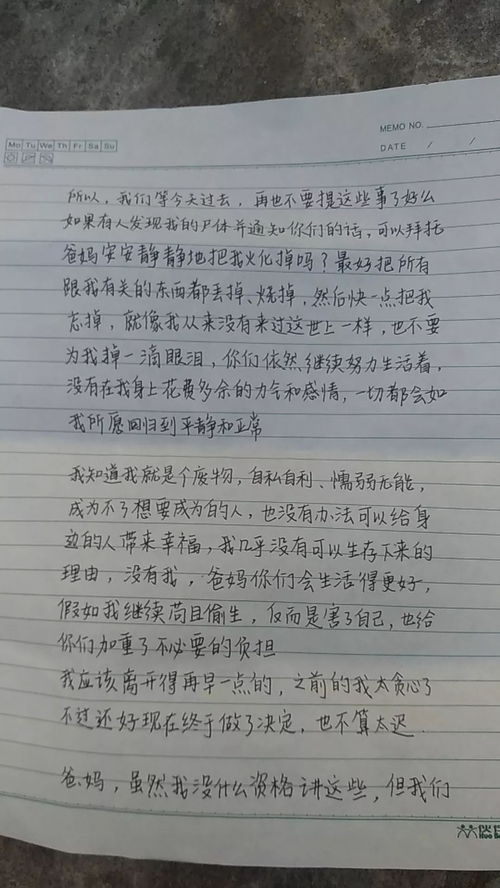 MEMO NO.
Mo Tu We Th Fr Sa Su
DATE / /
所以，我们等今天过去，再也不要提这些事了好么
如果有人发现我的尸体并通知你们的话，可以拜托
爸妈安安静静地把我火化掉吗？最好把所有
跟我有关的东西都丢掉、烧掉，然后快一点把我
忘掉，就像我从来没有来过这世上一样，也不要
为我掉一滴眼泪，你们依然继续努力生活着，
没有在我身上花费多余的力气和感情，一切都会如
我所愿回归到平静和正常
我知道我就是个废物，自私自利、懦弱无能，
成为不了想要成为的人，也没有办法可以给身
边的人带来幸福，我几乎没有可以生存下来的
理由，没有我，爸妈你们会生活得更好，
假如我继续苟且偷生，反而是害了自己，也给
你们加重了不必要的负担
我应该离开得再早一点的，之前的我太贪心了
不过还好现在终于做了决定，也不算太迟.
爸妈，虽然我没什么资格讲这些，但我们